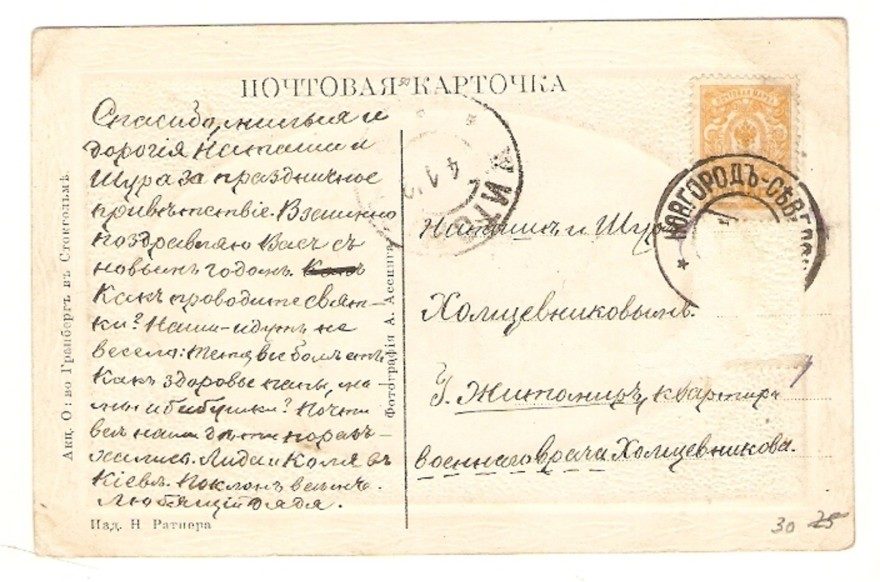 ПОЧТОВАЯ КАРТОЧКА
Спасибо, милыя и
дорогія Наташа и
Шура за праздничное
привѣтствіе. Взаимно
поздравляю Васъ съ
новымъ годомъ.
Какъ проводите свят-
ки? Наши идутъ не
весело:
Какъ здоровье папы, ма-
мы и бабушки? Почти
всѣ наши дѣти поразъ-
ѣхались. Лида и Коля въ
Кіевѣ. Поклонъ всѣмъ.
Любящій дядя.
Наташѣ и Шурѣ
Холщевниковымъ.
Г. Житомиръ, квартира
военнаго врача Холщевникова.
НОВГОРОДЪ-СѢВЕРСК
ЖИТО
Акц. О-во Гранбергъ въ Стокгольмѣ
Фотографія А. Ассинга
Изд. Н Ратнера
30 25